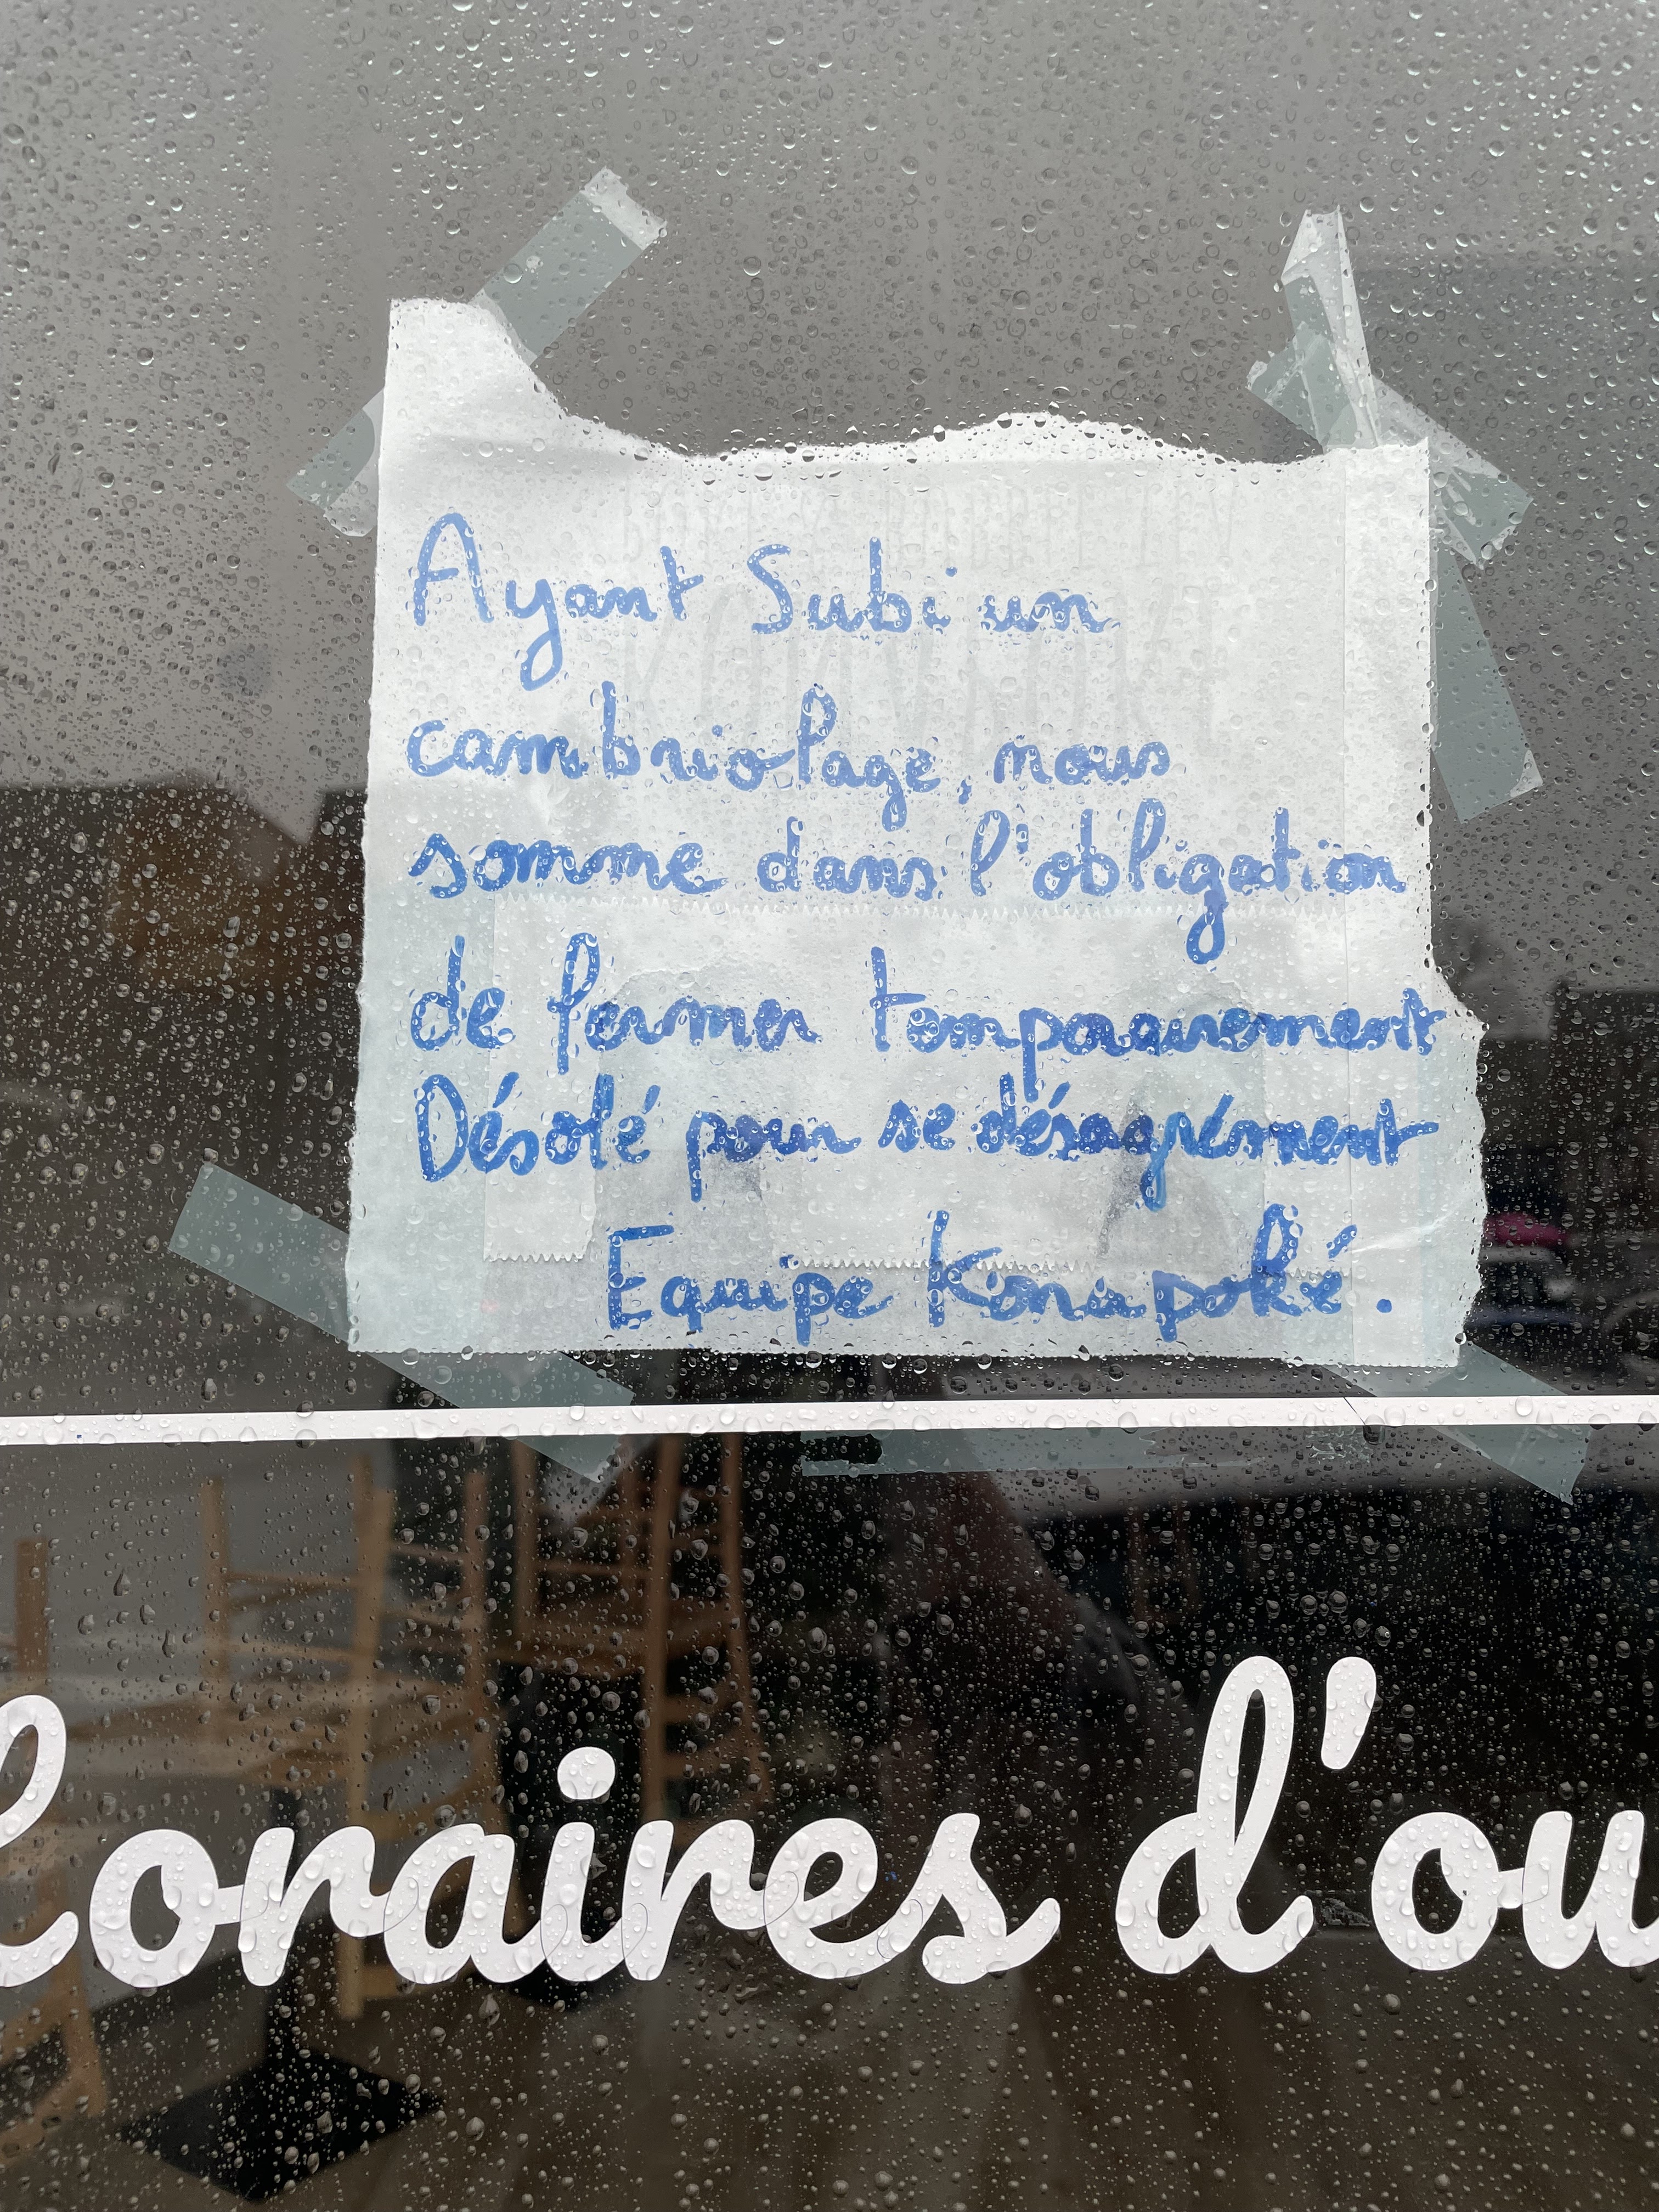 Ayant Subi un
cambriolage, nous
somme dans l'obligation
de fermer temporairement
Désolé pour se désagrément
Equipe Konapoké.
Horaires d'ou